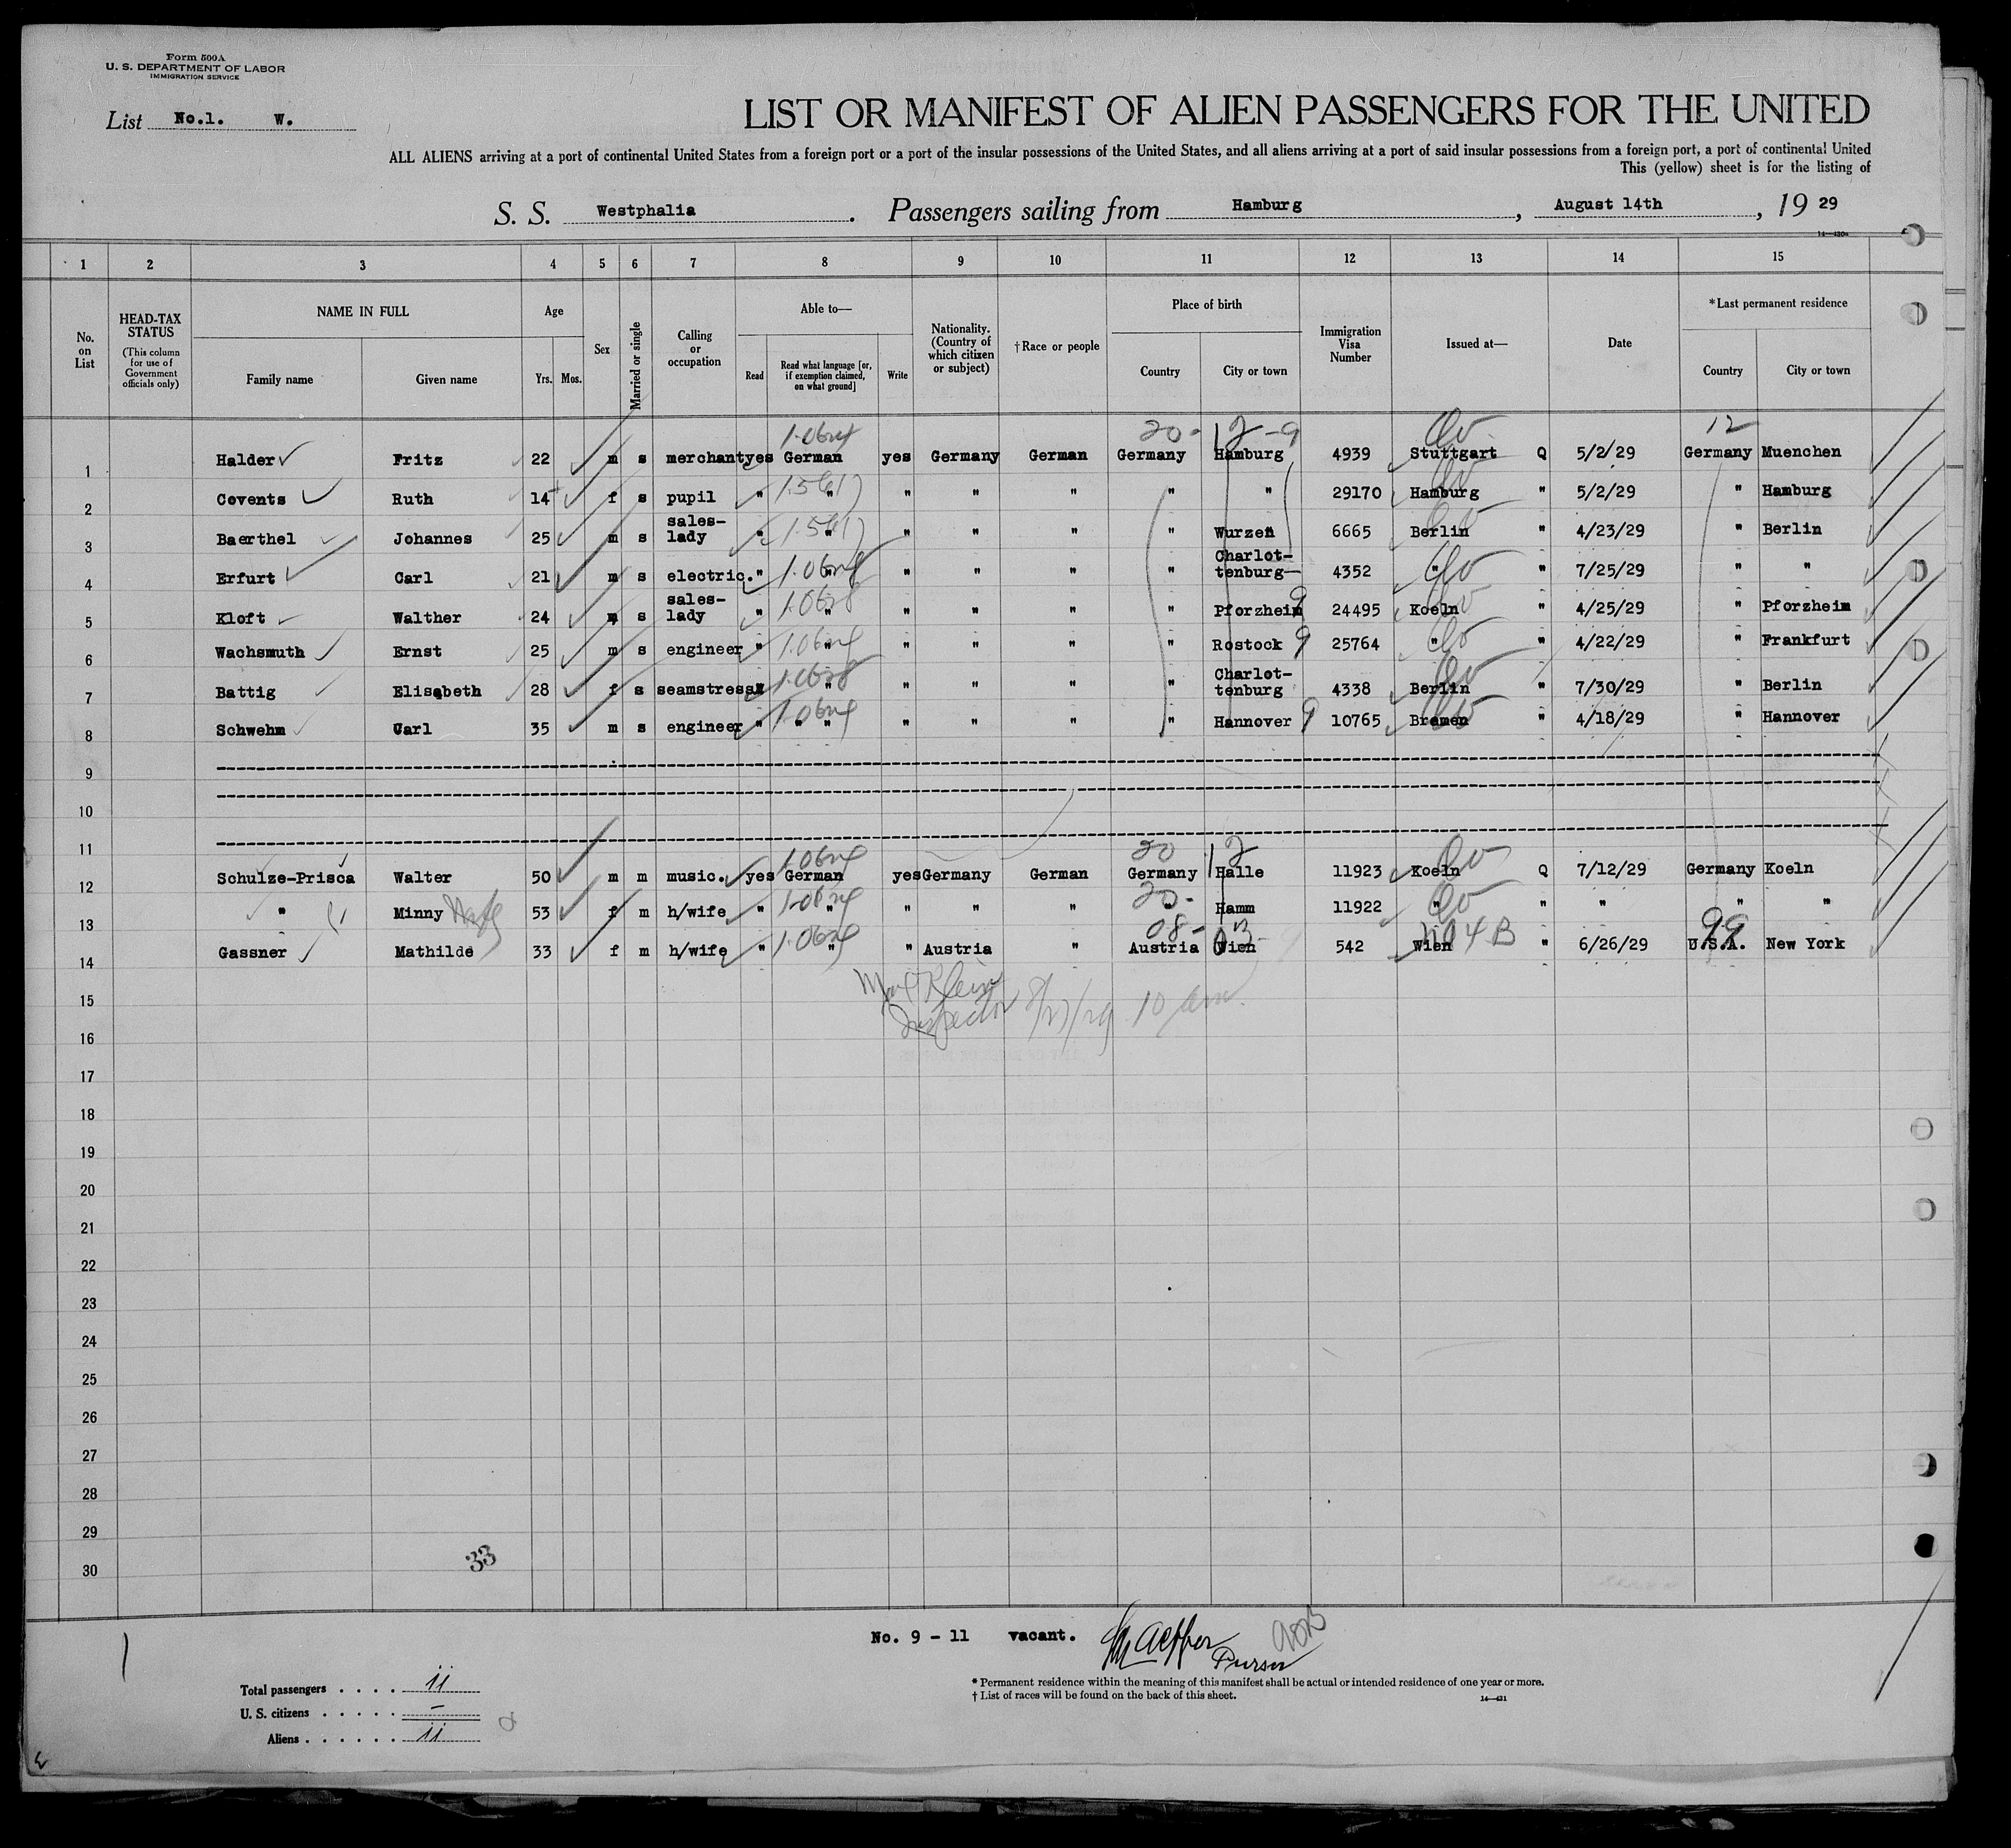 Form 500A
U. S. DEPARTMENT OF LABOR
IMMIGRATION SERVICE
List No.1. W.
LIST OR MANIFEST OF ALIEN PASSENGERS FOR THE UNITED
ALL ALIENS arriving at a port of continental United States from a foreign port or a port of the insular possessions of the United States, and all aliens arriving at a port of said insular possessions from a foreign port, a port of continental United
This (yellow) sheet is for the listing of
S. S. Westphalia. Passengers sailing from Hamburg, August 14th, 19 29
1 2 3 4 5 6 7 8 9 10 11 12 13 14 15
No. on List
HEAD-TAX STATUS (This column for use of Government officials only)
NAME IN FULL Family name Given name
Age Yrs. Mos.
Sex
Married or single
Calling or occupation
Able to— Read Read what language [or, if exemption claimed, on what ground] Write
Nationality. (Country of which citizen or subject)
†Race or people
Place of birth Country City or town
Immigration Visa Number
Issued at—
Date
*Last permanent residence Country City or town
1.0624 20- 12-9 12
1 Halder Fritz 22 m s merchant yes German yes Germany German Germany Hamburg 4939 Stuttgart Q 5/2/29 Germany Muenchen
2 Covents Ruth 14 f s pupil " " " " " " " 29170 Hamburg " 5/2/29 " Hamburg
3 Baerthel Johannes 25 m s sales-lady " " " " " " Wurzen 6665 Berlin " 4/23/29 " Berlin
4 Erfurt Carl 21 m s electric. " " " " " " Charlot-tenburg 4352 " " 7/25/29 " "
5 Kloft Walther 24 m s sales-lady " " " " " " Pforzheim 24495 Koeln " 4/25/29 " Pforzheim
6 Wachsmuth Ernst 25 m s engineer " " " " " " Rostock 9 25764 " " 4/22/29 " Frankfurt
7 Battig Elisabeth 28 f s seamstress " " " " " " Charlot-tenburg 4338 Berlin " 7/30/29 " Berlin
8 Schwehm Carl 35 m s engineer " " " " " " " Hannover 9 10765 Bremen " 4/18/29 " Hannover
9
10
11
1.0624 20 12
12 Schulze-Prisca Walter 50 m m music. yes German yes Germany German Germany Halle 11923 Koeln Q 7/12/29 Germany Koeln
13 " Minny 53 f m h/wife " " " " " " Hamm 11922 " " " " "
08- 03 99
14 Gassner Mathilde 33 f m h/wife " " Austria " Austria Wien 542 Wien " 6/26/29 U.S.A. New York
15 Klein
16 Inspector 8/27/29 10 am.
17
18
19
20
21
22
23
24
25
26
27
28
29
30
33
No. 9 - 11 vacant. Purser
Total passengers . . . . 11
U. S. citizens . . . . . –
Aliens . . . . . . 11
* Permanent residence within the meaning of this manifest shall be actual or intended residence of one year or more.
† List of races will be found on the back of this sheet.
14—431